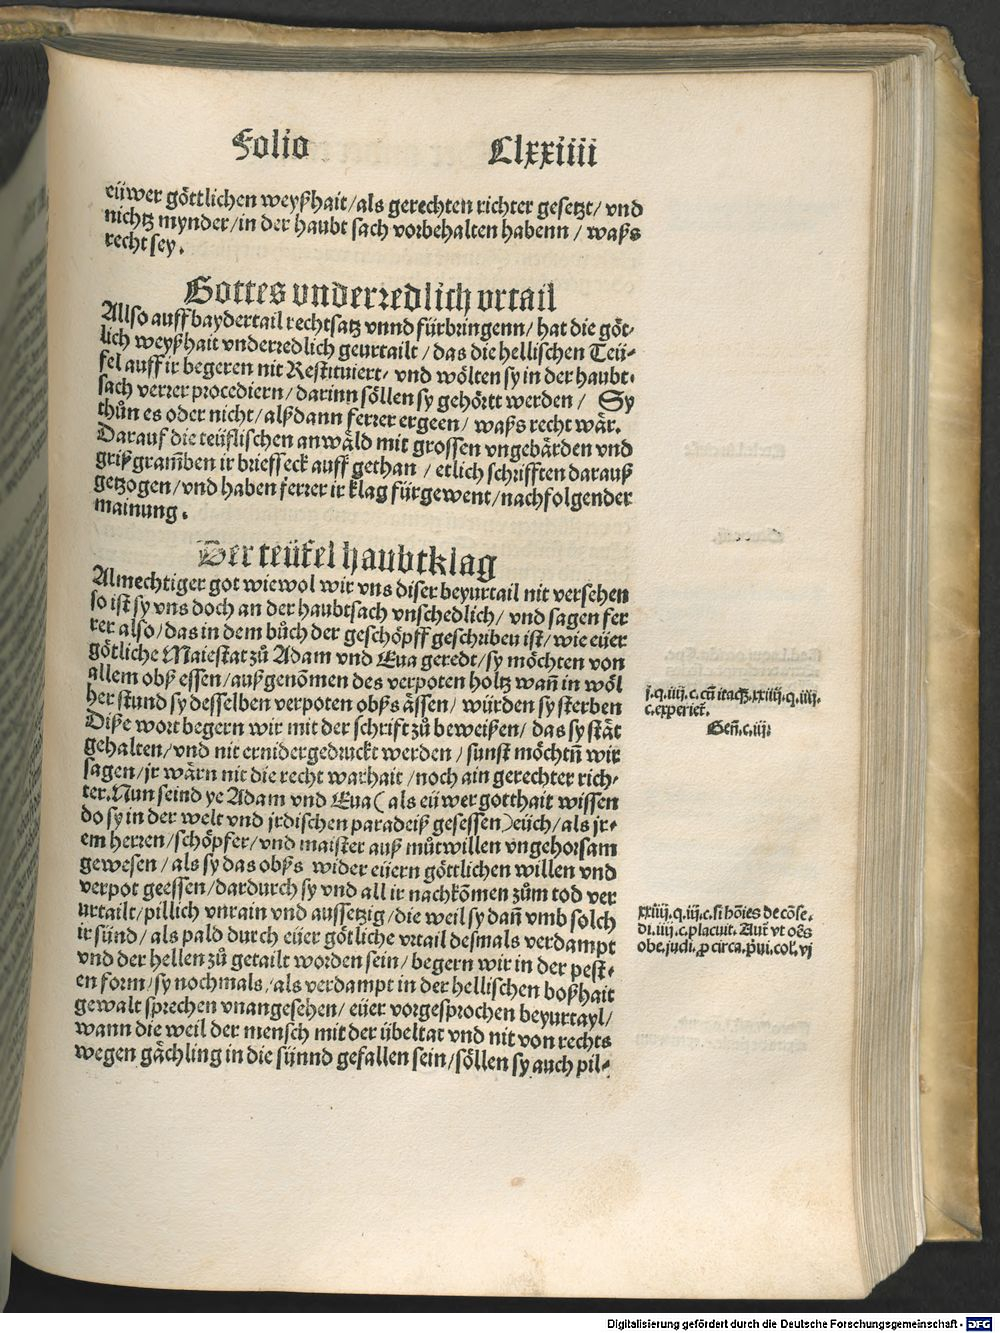 Folio Clxxiiii
eüwer göttlichen weyßhait/als gerechten richter gesetzt/ vnd
nichtz mynder/in der haubt sach vorbehalten habenn / waßs
recht sey.
Gottes vnderredlich vrtail
Allso auff baydertail rechtsatz vnnd fürbringenn/ hat die göt-
lich weyßhait vnderredlich geurtailt / das die hellischen Teü-
fel auff ir begeren nit Restituiert/ vnd wölten sy in der haubt-
sach verrer procediern/ darinn söllen sy gehörtt werden / Sy
thůn es oder nicht/ alßdann ferrer ergeen/ waßs recht wär.
Darauf die teüflischen anwäld mit grossen vngebärden vnd
grißgram̄ben ir brieffseck auff gethan / etlich schrifften darauß
getzogen/ vnd haben ferrer ir klag fürgewent/ nachfolgender
mainung.
Der teüfel haubtklag
Almechtiger got wiewol wir vns diser beyurtail nit versehen
so ist sy vns doch an der haubtsach vnschedlich/ vnd sagen fer
rer also/ das in dem bůch der geschöpff geschriben ist/ wie eüer
götliche Maiestat zů Adam vnd Eua geredt/ sy möchten von
allem obß essen/ außgenōmen des verpoten holtz wan̄ in wöl
her stund sy desselben verpoten obßs ässen/ würden sy sterben
Diße wort begern wir mit der schrift zů beweißen/ das sy stät
gehalten/ vnd nit ernidergedruckt werden / sunst möchtn̄ wir
sagen/ jr wärn nit die recht warhait /noch ain gerechter rich-
ter. Nun seind ye Adam vnd Eua ( als eüwer gotthait wissen
do sy in der welt vnd jrdischen paradeiß gesessen) eüch/ als jr-
em herren/ schöpfer/ vnd maister auß můtwillen vngehorsam
gewesen / als sy das obßs wider eüern göttlichen willen vnd
verpot geessen/ dardurch sy vnd all ir nachkōmen zům tod ver
urtailt/ pillich vnrain vnd aussetzig/ die weil sy dan̄ vmb solch
ir sünd/ als pald durch eüer götliche vrtail desmals verdampt
vnd der hellen zů getailt worden sein/ begern wir in der pest-
en form/ sy nochmals/ als verdampt in der hellischen boßhait
gewalt sprechen vnangesehen/ eüer vorgesprochen beyurtayl/
wann die weil der mensch mit der übeltat vnd nit von rechts
wegen gächling in die sünnd gefallen sein/ söllen sy auch pil-
j.q.iiij.c.cū itaq̃.xxiiij.q.iiij.
c.experiet̃.
Gen̄.c.iij.
xxiiij.q.iij.c.si hōies de cōse.
di.iiij.c.placuit. Aut̃ vt oēs
obe.judi.p̱ circa.p̄ui.col.vj
Digitalisierung gefördert durch die Deutsche Forschungsgemeinschaft - DFG